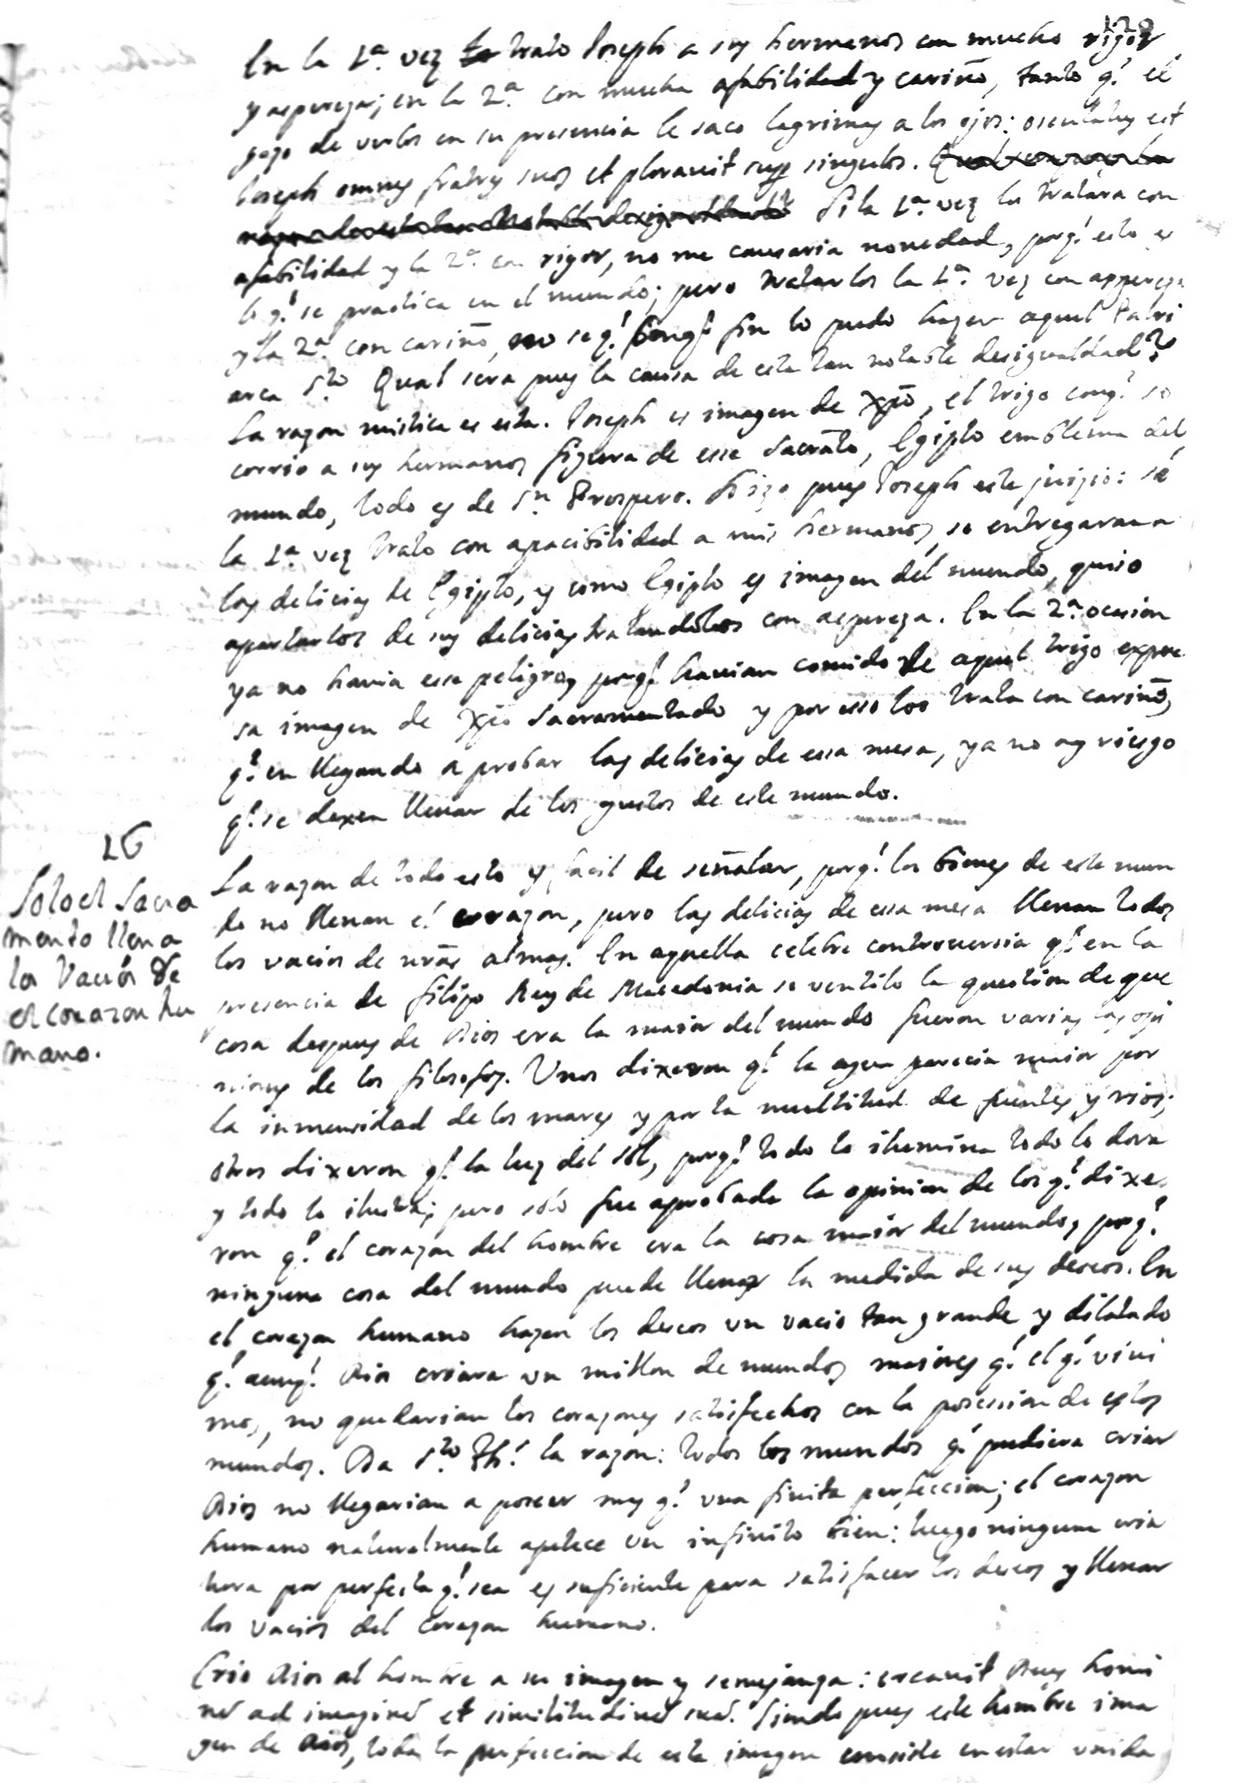 120
En la 1.ª vez trato Joseph a sus hermanos con mucho rigor
y aspereza; en la 2.ª con mucha afabilidad y cariño, tanto q.e el
gozo de verlos en su presencia le saco lagrimas a los ojos: osculatus est
Joseph omnes fratres suos et ploravit sup singulos.
Si la 1.ª vez los tratara con
afabilidad y la 2.ª con rigor, no me causaria novedad, porq.e esto es
lo q.e se practica en el mundo; pero tratarlos la 1.ª vez con aspereza
y la 2.ª con cariño, no se q.e fin lo pudo hazer aquel Patri
arca S.to Qual sera pues la causa de esta tan notable desigualdad?
La razon mistica es esta. Joseph es imagen de Xpō, el trigo conq.e so
corrio a sus hermanos figura de esse Sacramto, Egipto emblema del
mundo, todo es de S.n Prospero. Hizo pues Joseph este juizio: si
la 1.ª vez trato con apacibilidad a mis hermanos, se entregaran a
las delicias de Egipto, y como Egipto es imagen del mundo, quiso
apartarlos de sus delicias tratandolos con aspereza. En la 2.ª ocasion
ya no havia esse peligro, porq.e havian comido de aquel trigo expre
sa imagen de Xpō Sacramentado y por esso los trata con cariño,
q.e en llegando a probar las delicias de essa mesa, ya no ay riesgo
q.e se dexen llevar de los gustos de este mundo.
16
Solo el Sacra
mento llena
los vacios de
el corazon hu
mano.
La razon de todo esto es facil de señalar, porq.e los bienes de este mun
do no llenan el corazon, pero las delicias de essa mesa llenan todos
los vacios de nrās almas. En aquella celebre controversia q.e en la
presencia de filipo Rey de Macedonia se ventilo la question de que
cosa despues de Dios era la maior del mundo fueron varias las opi
niones de los filosofos. Unos dixeron q.e la agua parecia maior por
la inmensidad de los mares y por la multitud de fuentes y rios;
otros dixeron q.e la luz del sol, porq.e todo lo ilumina todo lo dora
y todo lo ilustra; pero solo fue aprobada la opinion de los q.e dixe
ron q.e el corazon del hombre era la cosa maior del mundo, porq.e
ninguna cosa del mundo puede llenar la medida de sus deseos. En
el corazon humano hazen los deseos un vacio tan grande y dilatado
q.e aunq.e Dios criara un millon de mundos maiores q.e el q.e vivi
mos, no quedarian los corazones satisfechos con la posession de estos
mundos. Da S.to Th.e la razon: todos los mundos q.e pudiera criar
Dios no llegarian a poseer mas q.e una finita perfeccion; el corazon
humano naturalmente apetece un infinito bien: luego ninguna cria
tura por perfecta q.e sea es suficiente para satisfacer los deseos y llenar
los vacios del corazon humano.
Crio Dios al hombre a su imagen y semejanza: creavit Deus homi
nē ad imaginē et similitudinē suā. Siendo pues este hombre ima
gen de Dios, toda la perfeccion de esta imagen consiste en estar unida